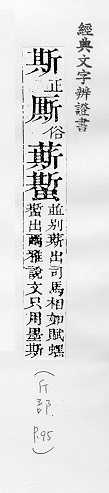 經典文字辨證書
斯正厮俗蟴
並别出司馬相如賦
出爾雅說文只用墨斯
(斤部. P.95)